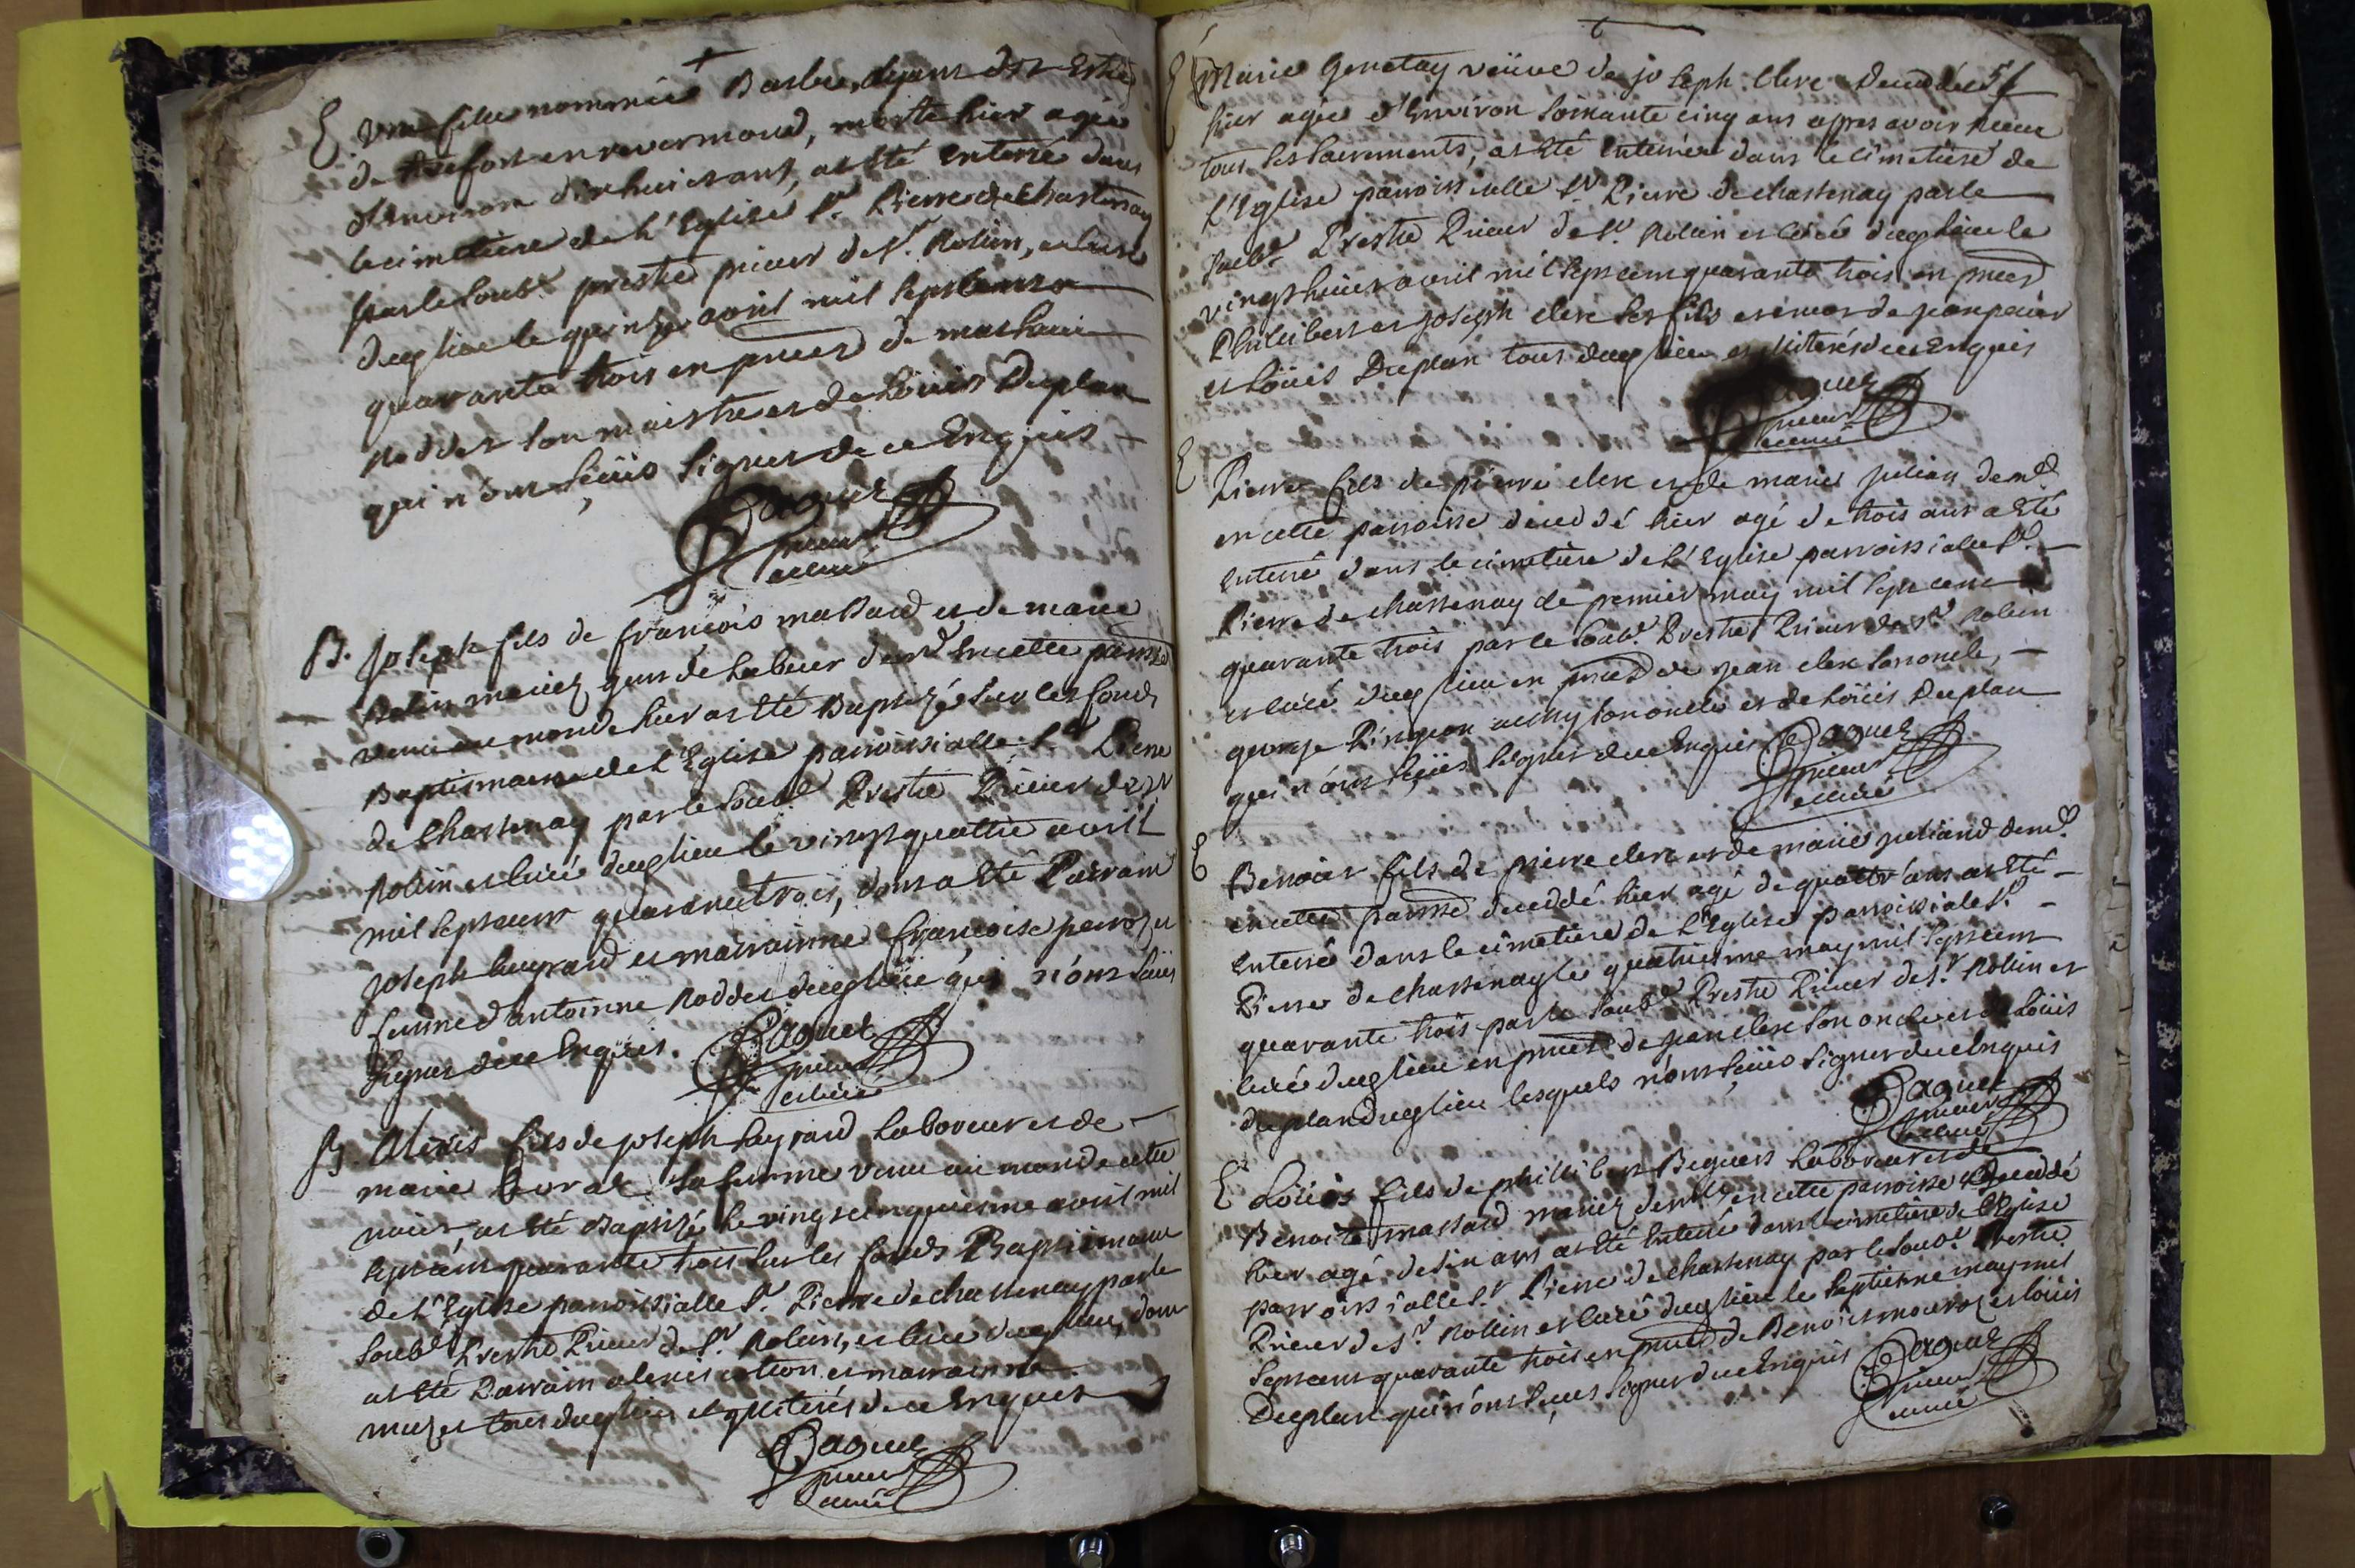 E Une fille nommée Barbe, disant estre
de Treffort en revermond, morte hier agée
d'environ dixhuict ans, at esté enterré dans
le cimetiere de l'Eglise St. Pierre de Chastenay
par le soubé prestre prieur de St. Rolin, et curé
duq lieu le quinze avril mil sept cens
quarante trois en pnced de
Noddes son maistre et de Loüis Duplan
qui n'ont sçeüs signer de ce Enquis
Paquet
prieur
et curé
B. Joseph fils de françois massard et de marie
mariez gens de labeur demt. en cette parrsse
venu au monde hier at esté Baptizé sur les fonds
Baptismaux de l'Eglise parroissialle St. Pierre
de Chastenay par le soubé Prestre Prieur de St
Rolin et curé duq lieu le vingt quattre avril
mil sept cens quarante trois, dont a esté Parrain
Joseph Layrard et marrainne françoise
femme d'antoinne Noddes duq lieu qui n'ont sçeüs
signer de ce Enquis. Paquet
prieur
et curé
B. Alexis fils de joseph Layrard laboureur et de
marie sa femme venu au monde cette
nuict, at esté Baptizé le vingt cinquiesme avril mil
sept cens quarante trois sur les fonds Baptismaux
de l'Eglise parroissialle St. Pierre de chastenay par le
soubé Prestre Prieur de St. Rolin, et curé duq lieu, dont
at esté Parrain alexis et marrainne
tous duq lieu et illiterés de ce Enquis
Paquet
prieur
et curé
E Marie Genetay veüve de joseph Clerc decedée 51
hier agée d'Environ soixante cinq ans apres avoir receu
tous ses sacrements, at esté enterrée dans le cimetiere de
l'Eglise parroissialle St. Pierre de chastenay par le
soubé Prestre Prieur de St. Rolin et curé duq lieu le
vingt huict avril mil sept cens quarante trois en pnced
Philibert et Joseph clerc ses fils et
et Loüis Duplan tous duq lieu et illiterés de ce Enquis
Paquet
prieur
et curé
E Pierre fils de pierre clerc et de marie julian demt.
en cette parroisse deceddé hier agé de trois ans a esté
enterré dans le cimetiere de l'Eglise parroissialle St.
Pierre de chastenay le premier may mil sept cens
quarante trois par le soubé. Prestre Prieur de St Rolin
et curé duq lieu en pnced de jean clerc son oncle,
george Pingeon aussy son oncle et de Loüis Duplan
qui n'ont sçeüs signer de ce Enquis Paquet
prieur
et curé
E Benoict fils de pierre clerc et de marie juliand demt.
en cette parrsse deceddé hier agé de quattr'ans at esté
enterré dans le cimetiere de l'Eglise parroissiale St.
Pierre de chastenay le quattriesme may mil sept cens
quarante trois par le soubé Prestre Prieur de St. Rollin et
curé duq lieu en pnced de jean clerc son oncle et de Loüis
duplan duq lieu lesquels n'ont sçeüs signer de ce Enquis
Paquet
prieur
et curé
E Loüis fils de philibert Beguet laboureur et de
Benoite massard mariez demts en cette parroisse Deceddé
hier agé de six ans at esté enterré dans le cimetiere de l'Eglise
parroissialle St. Pierre de chastenay par le soubé Prestre
Prieur de St. Rollin et curé duq lieu le septiesme may mil
sept cens quarante trois en pnced de Benoict et Loüis
Duplan qui n'ont sçeus signer de ce Enquis Paquet
prieur
et curé